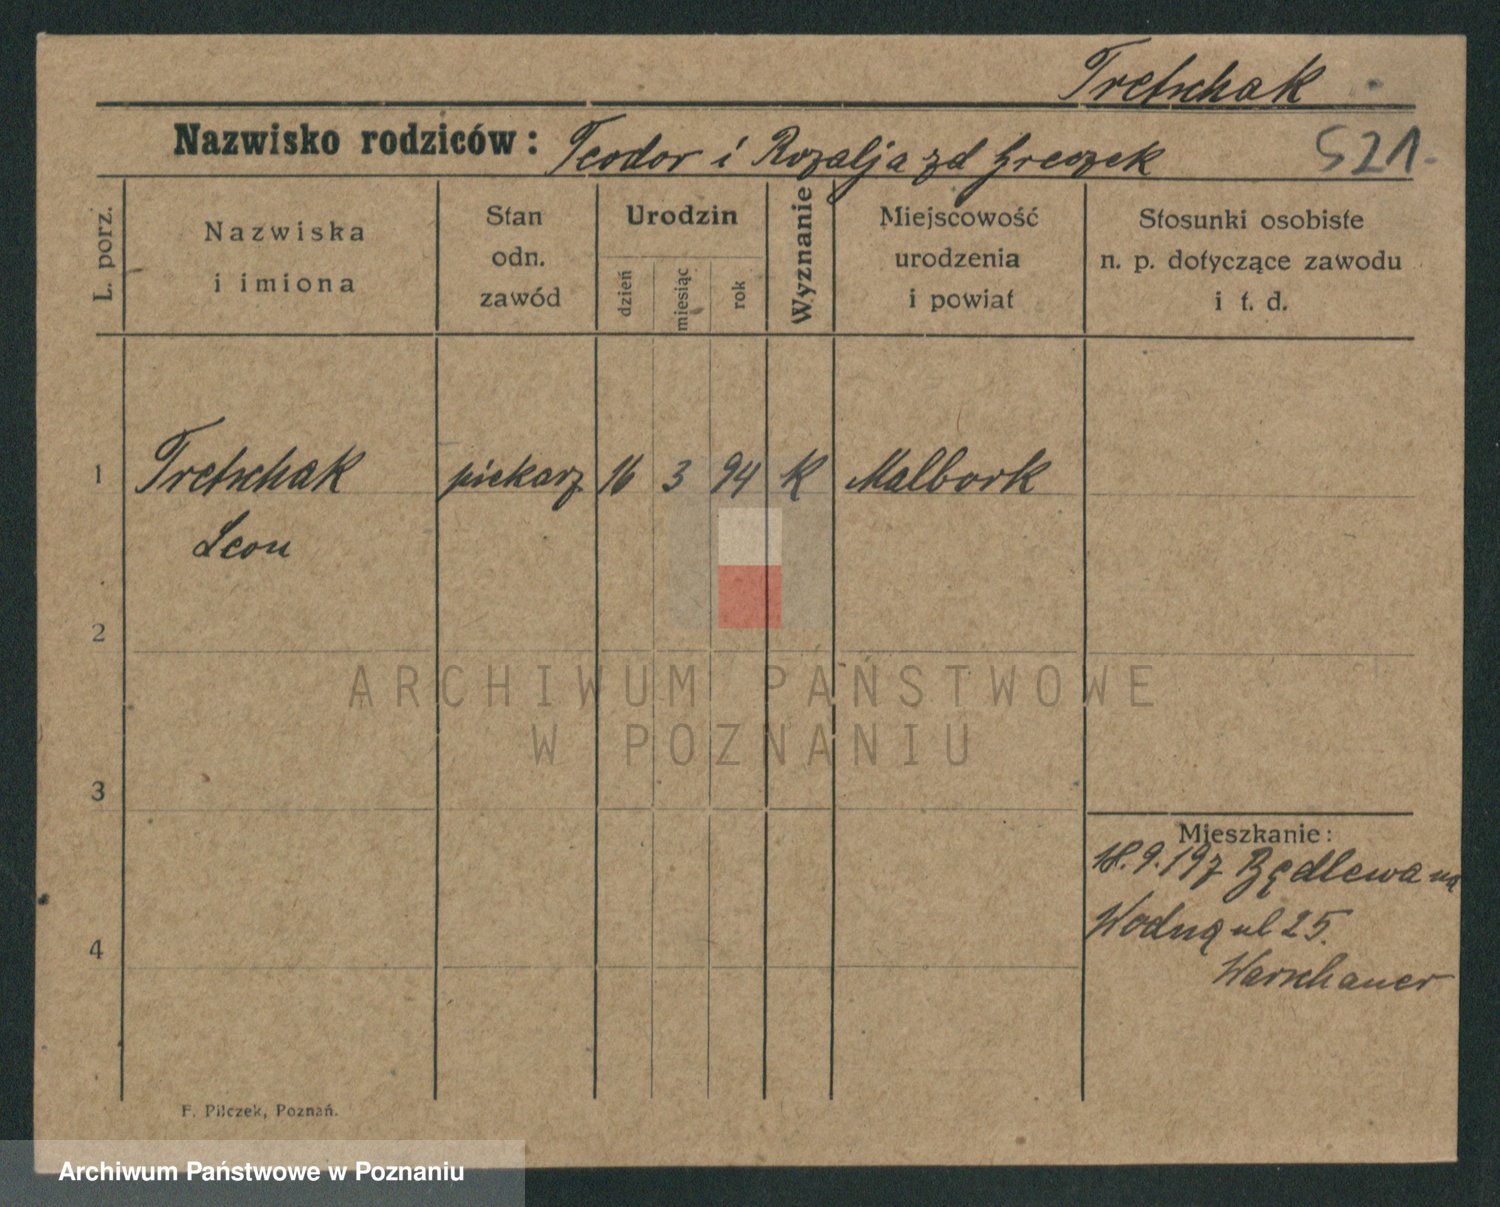 Tretschak
Nazwisko rodziców: Teodor i Rozalja zd Greczek
521.
L. porz.
Nazwiska
i imiona
Stan
odn.
zawód
Urodzin
dzień
miesiąc
rok
Wyznanie
Miejscowość
urodzenia
i powiat
Stosunki osobiste
n. p. dotyczące zawodu
i t. d.
1 Tretschak piekarz 16 3 94 K Malbork
Leon
2
ARCHIWUM PAŃSTWOWE
W POZNANIU
3
Mieszkanie:
18.9.197 Będlewa na
4
Wodną ul 25.
Warschauer
F. Pilczek, Poznań.
Archiwum Państwowe w Poznaniu